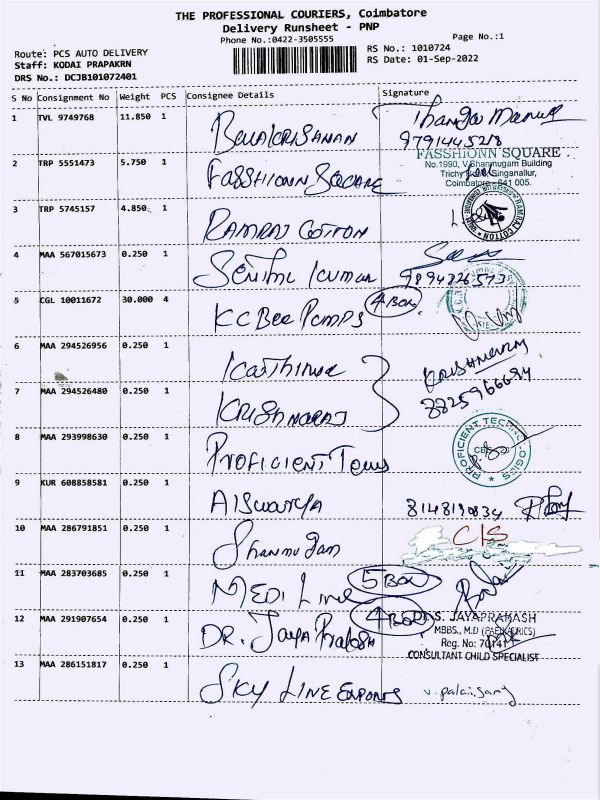 THE PROFESSIONAL COURIERS, Coimbatore
Delivery Runsheet - PNP
Phone No.:0422-3505555
Page No.:1
Route: PCS AUTO DELIVERY
Staff: KODAI PRAPAKRN
DRS No.: DCJB101072401
RS No.: 1010724
RS Date: 01-Sep-2022
S No Consignment No Weight PCS Consignee Details Signature
1 TVL 9749768 11.850 1 BALAKRISHNAN
9791445218
2 TRP 5551473 5.750 1 FASSHIONN SQUARE
FASSHIONN SQUARE
No.1990, V.Shanmugam Building
Trichy Road, Singanallur,
Coimbatore - 641 005.
3 TRP 5745157 4.850 1 RAMRAJ COTTON
RAMRAJ COTTON
4 MAA 567015673 0.250 1 SENTHIL KUMAR
9894326573
5 CGL 10011672 30.000 4 KC Bee PUMPS 4 BOX
6 MAA 294526956 0.250 1 KARTHIKA
7 MAA 294526480 0.250 1 KRISHNARAJ
KRISHNARAJ
8825966694
8 MAA 293998630 0.250 1 PROFICIENT
PROFICIENT TECHNOLOGIES
9 KUR 608858581 0.250 1 AISWARYA 8148190834
10 MAA 286791851 0.250 1 Shanmugam CIS
11 MAA 283703685 0.250 1 MEDI LINE 5 BOX
12 MAA 291907654 0.250 1 DR. JAYA PRAKASH 4 BOX
DR. S. JAYAPRAKASH
MBBS., M.D (PAEDIATRICS)
Reg. No: 70141
CONSULTANT CHILD SPECIALIST
13 MAA 286151817 0.250 1 SKY LINE EXPORTS v. palaisamy